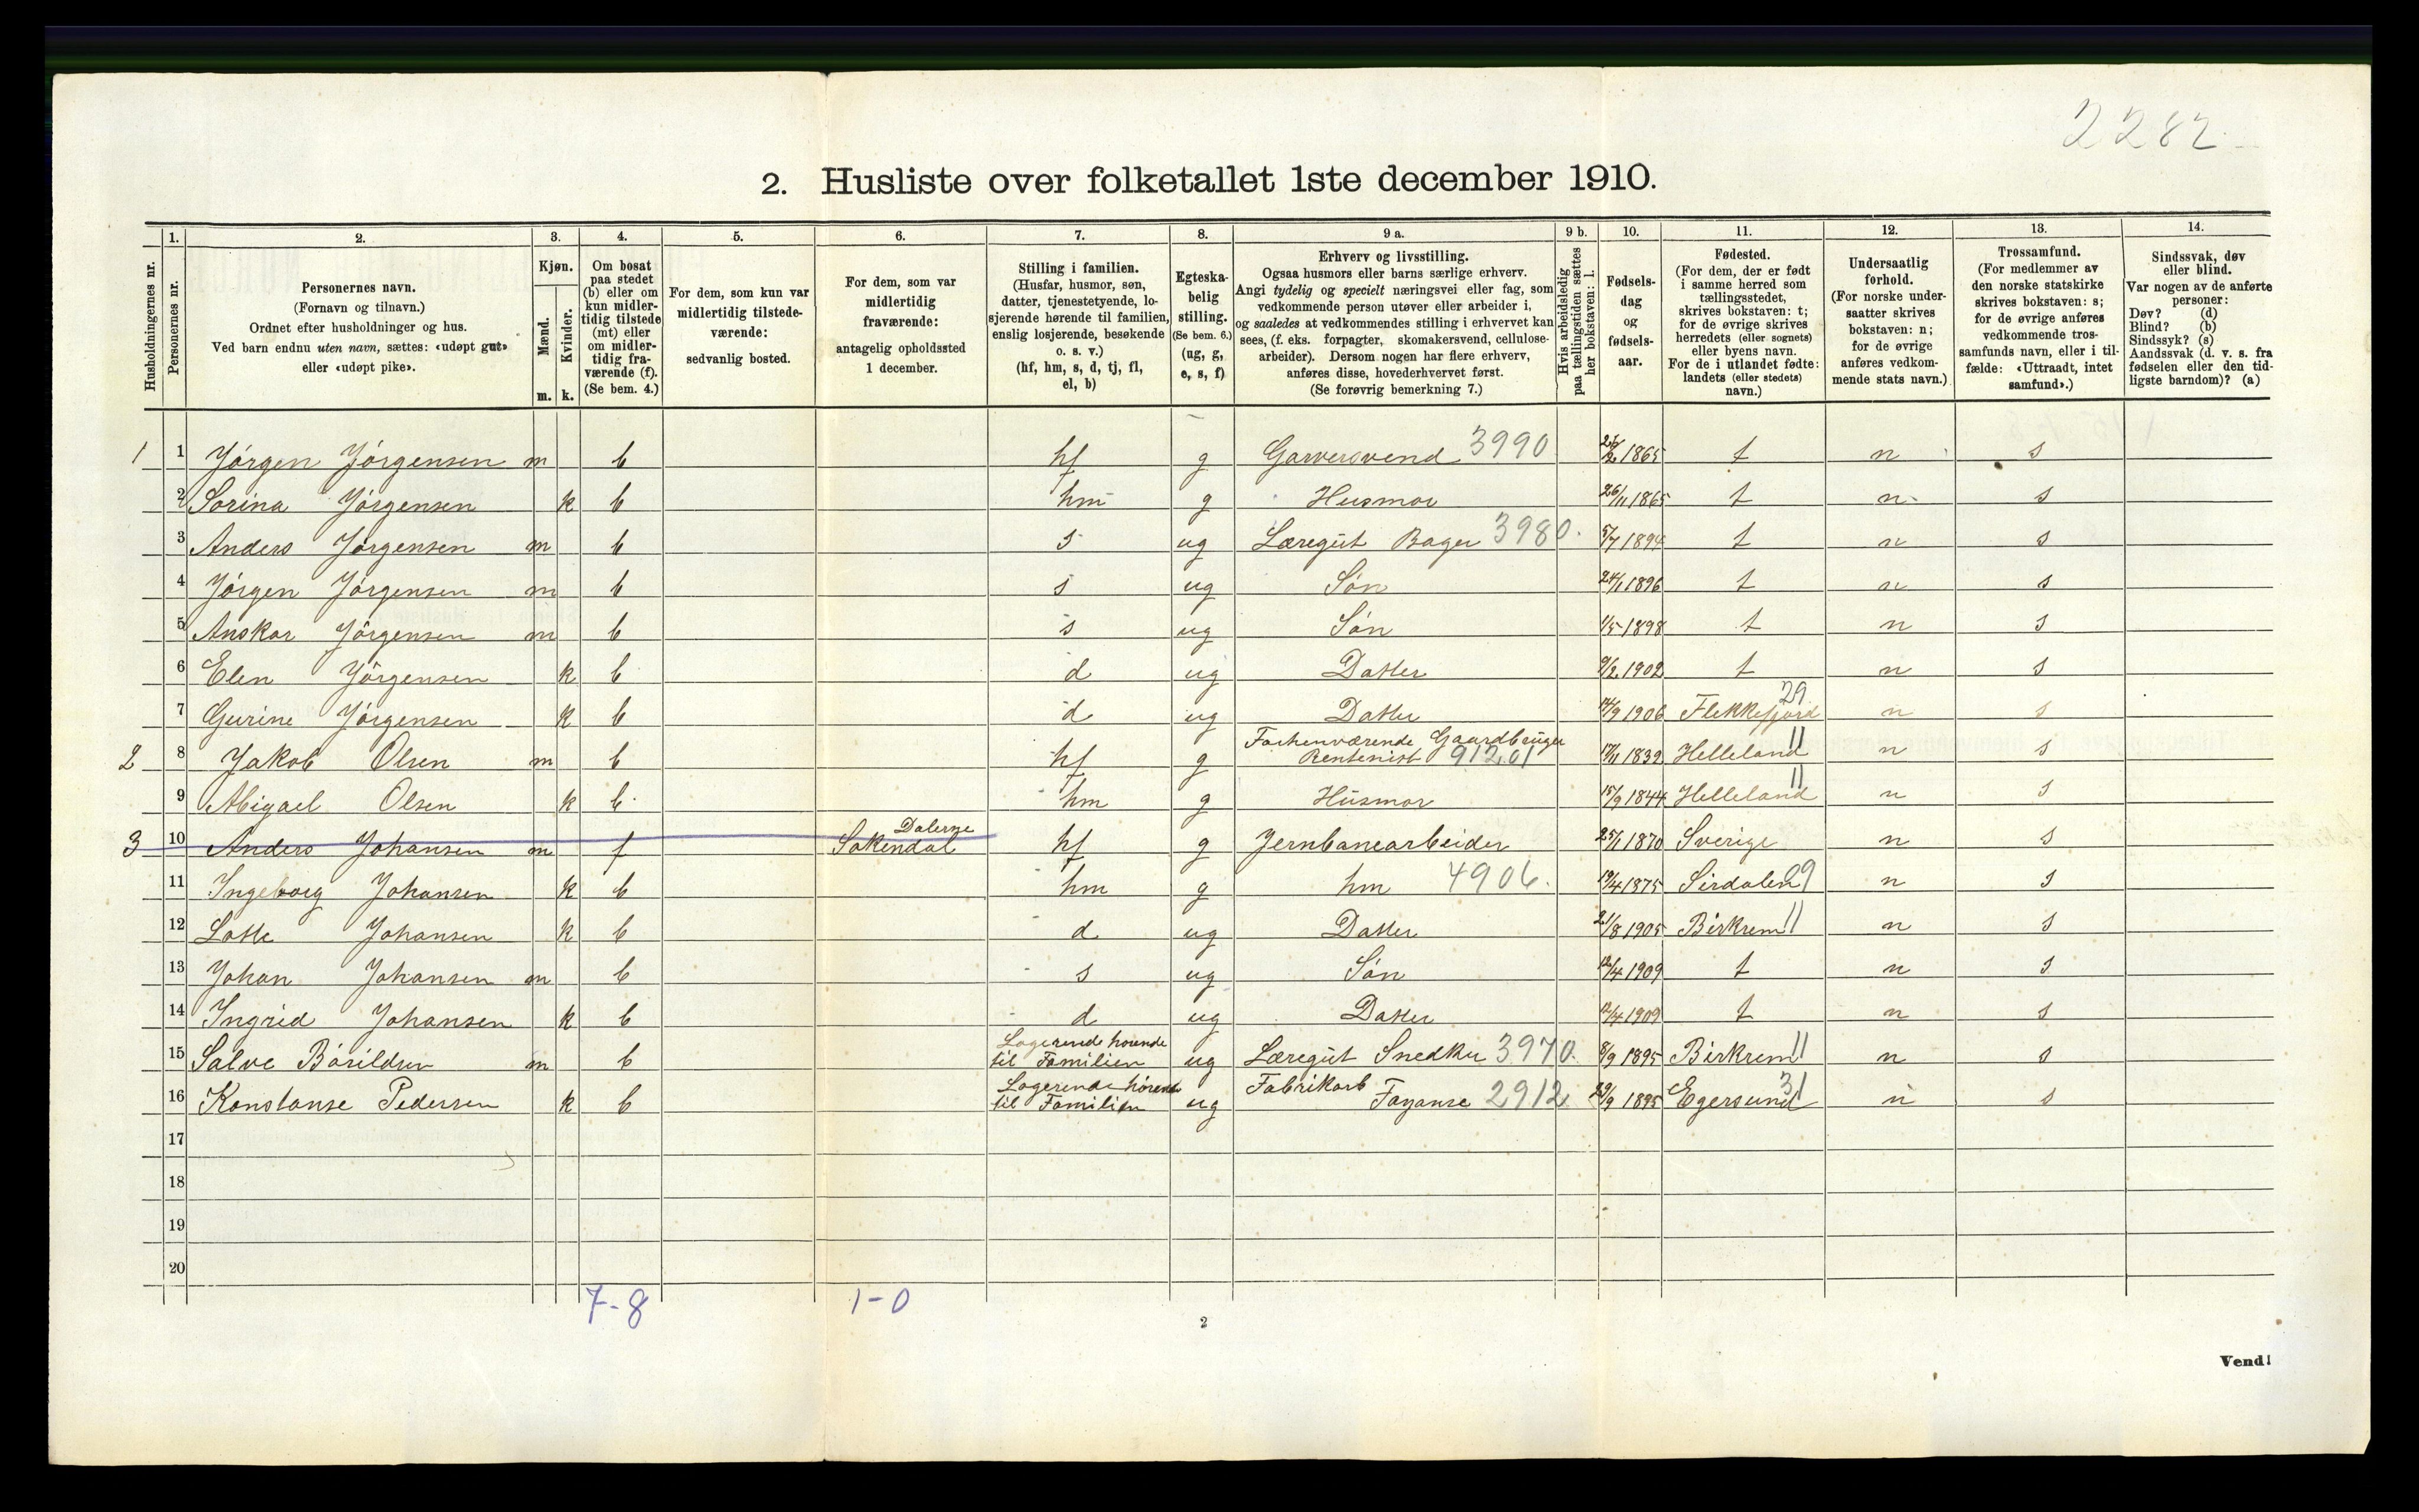 2282
2. Husliste over folketallet 1ste december 1910.
Husholdningernes nr.
1.
Personernes nr.
2.
Personernes navn.
(Fornavn og tilnavn.)
Ordnet efter husholdninger og hus.
Ved barn endnu uten navn, sættes: «udøpt gut»
eller «udøpt pike».
3.
Kjøn.
Mænd.
Kvinder.
m. k.
4.
Om bosat
paa stedet
(b) eller om
kun midler-
tidig tilstede
(mt) eller
om midler-
tidig fra-
værende (f).
(Se bem. 4.)
5.
For dem, som kun var
midlertidig tilstede-
værende:
sedvanlig bosted.
6.
For dem, som var
midlertidig
fraværende:
antagelig opholdssted
1 december.
7.
Stilling i familien.
(Husfar, husmor, søn,
datter, tjenestetyende, lo-
sjerende hørende til familien,
enslig losjerende, besøkende
o. s. v.)
(hf, hm, s, d, tj, fl,
el, b)
8.
Egteska-
belig
stilling.
(Se bem. 6.)
(ug, g,
e, s, f)
9 a.
Erhverv og livsstilling.
Ogsaa husmors eller barns særlige erhverv.
Angi tydelig og specielt næringsvei eller fag, som
vedkommende person utøver eller arbeider i,
og saaledes at vedkommendes stilling i erhvervet kan
sees, (f. eks. forpagter, skomakersvend, cellulose-
arbeider). Dersom nogen har flere erhverv,
anføres disse, hovederhvervet først.
(Se forøvrig bemerkning 7.)
9 b.
Hvis arbeidsledig
paa tællingstiden sættes
her bokstaven: l.
10.
Fødsels-
dag
og
fødsels-
aar.
11.
Fødested.
(For dem, der er født
i samme herred som
tællingsstedet,
skrives bokstaven: t;
for de øvrige skrives
herredets (eller sognets)
eller byens navn.
For de i utlandet fødte:
landets (eller stedets)
navn.)
12.
Undersaatlig
forhold.
(For norske under-
saatter skrives
bokstaven: n;
for de øvrige
anføres vedkom-
mende stats navn.)
13.
Trossamfund.
(For medlemmer av
den norske statskirke
skrives bokstaven: s;
for de øvrige anføres
vedkommende tros-
samfunds navn, eller i til-
fælde: «Uttraadt, intet
samfund».)
14.
Sindssvak, døv
eller blind.
Var nogen av de anførte
personer:
Døv? (d)
Blind? (b)
Sindssyk? (s)
Aandssvak (d. v. s. fra
fødselen eller den tid-
ligste barndom)? (a)
1 1 Jörgen Jörgensen m b hf g Garversvend 3990 1865 t n s
2 Sorina Jörgensen k b hm g Husmor 26/11 1865 t n s
3 Anders Jörgensen m b s ug Læregut Bager 3980. 5/7 1894 t n s
4 Jörgen Jörgensen m b s ug Sön 24/1 1896 t n s
5 Anskar Jörgensen m b s ug Sön 1/5 1898 t n s
6 Elen Jörgensen k b d ug Datter 9/2 1902 t n s
7 Gurine Jörgensen k b d ug Datter 14/9 1906 Flekkefjord 29 n s
2 8 Jakob Olsen m b hf g Forhenværende Gaardbruger
Rentenist 912.01 17/11 1832 Helleland 11 n s
9 Abigael Olsen k b hm g Husmor 15/9 1844 Helleland 11 n s
3 10 Anders Johansen m f Dalerne
Sokendal hf g Jernbanearbeider 25/1 1870 Sverige n s
11 Ingeborg Johansen k b hm g hm 4906. 19/4 1875 Sirdalen 29 n s
12 Lotte Johansen k b d ug Datter 21/8 1905 Birkrem 11 n s
13 Johan Johansen m b s ug Sön 12/4 1909 t n s
14 Ingrid Johansen k b d ug Datter 12/4 1909 t n s
15 Salve Börildsen m b Logerende hörende
til Familien ug Læregut Snedker 3970. 8/9 1895 Birkrem 11 n s
16 Konstanse Pedersen k b Logerende hörende
til Familien ug Fabrikarb
Fayanse 2912 29/9 1895 Egersund 31 n s
17
18
19
20
7-8 1-0
2
Vend!